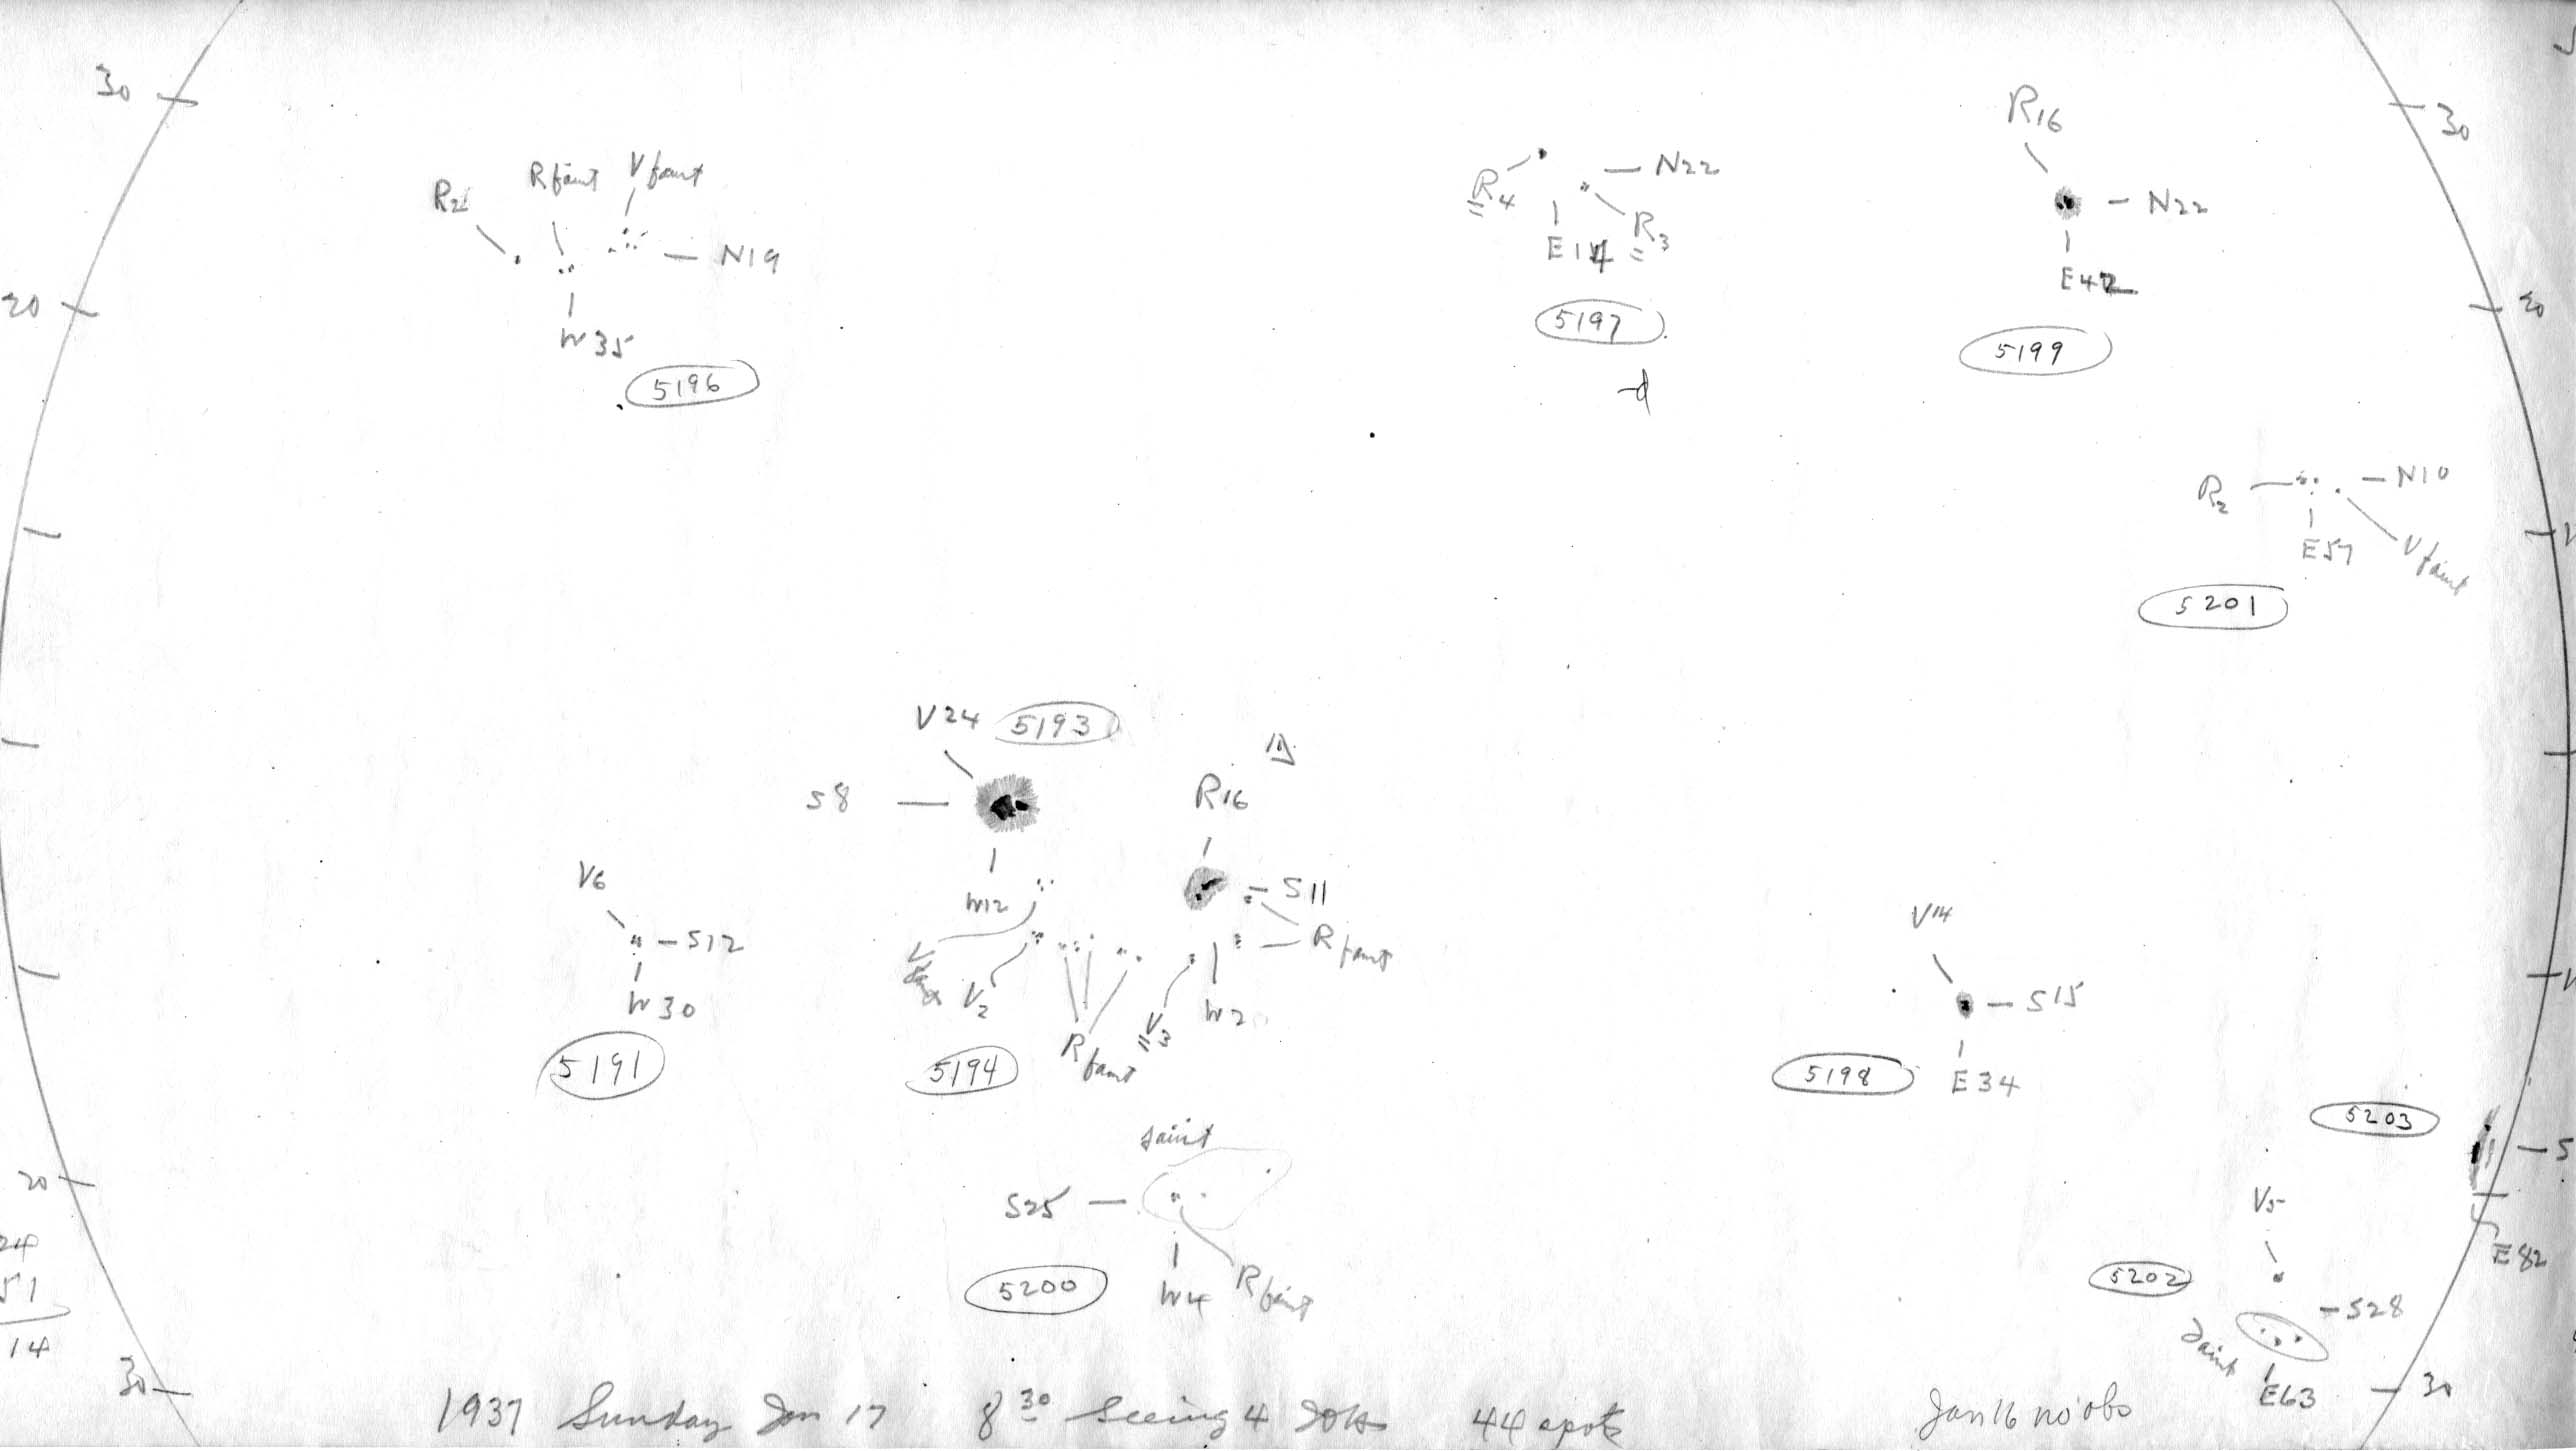 30
30
R16
R2
R faint
V faint
R4
N22
R3
N22
N19
E14
E42
20
20
W35
5197
5199
5196
R2
N10
E57
V faint
5201
V24
5193
S8
R16
W12
S11
V6
S12
R faint
W30
V2
V3
W2
R faint
5191
5194
V14
S15
5198
E34
5203
faint
S25
20
V5
W4
R faint
5200
5202
E82
S28
faint
E63
24
51
14
30
30
1937 Sunday Jan 17 8 30 Seeing 4 44 spots
Jan 16 no obs